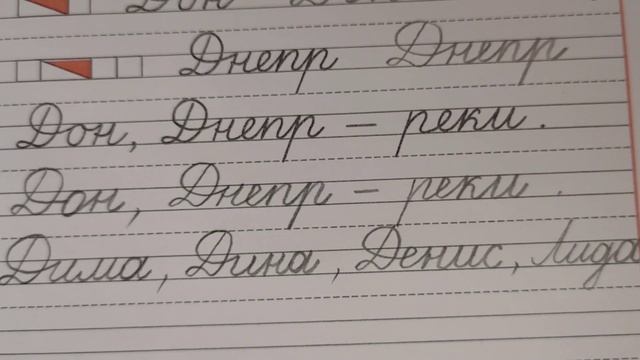 Дон Дон
Днепр Днепр
Дон, Днепр – реки.
Дон, Днепр – реки.
Дима, Дина, Денис, Лида